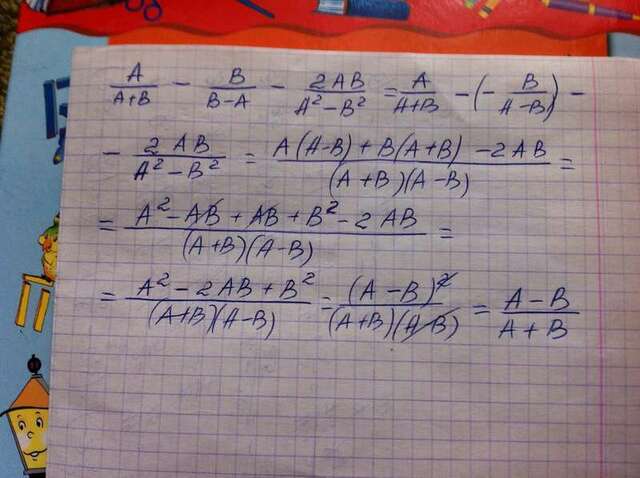 A/(A+B) − B/(B−A) − 2AB/(A²−B²) = A/(A+B) − (− B/(A−B)) −
− 2AB/(A²−B²) = (A(A−B) + B(A+B) − 2AB)/((A+B)(A−B)) =
= (A² − AB + AB + B² − 2AB)/((A+B)(A−B)) =
= (A² − 2AB + B²)/((A+B)(A−B)) = (A−B)²/((A+B)(A−B)) = (A−B)/(A+B)